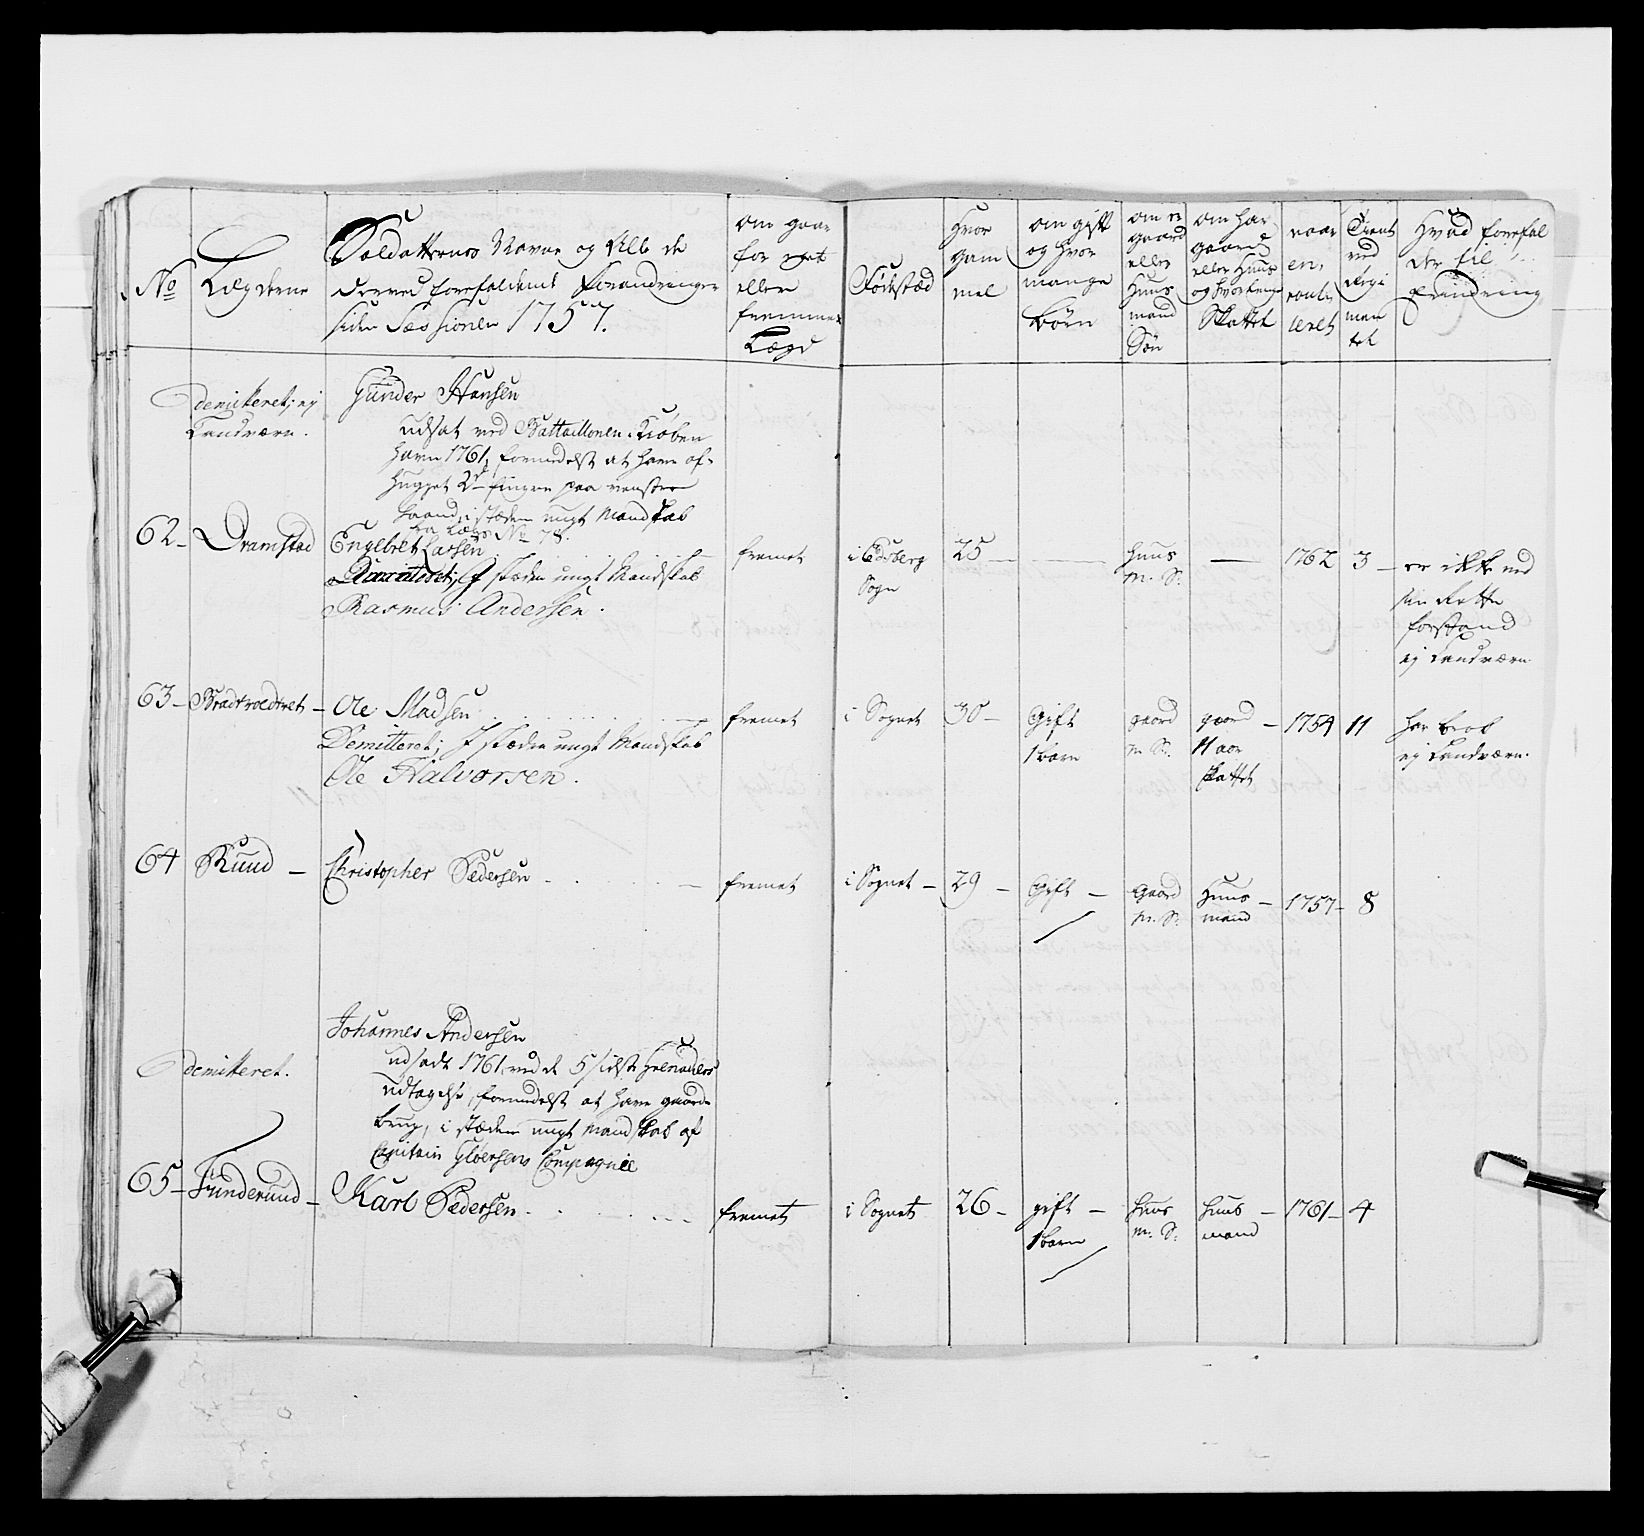 No
Legderne
Soldatternes Navne og Alle de
derved forefaldene Forandringer
siden Sessionen 1757.
om gaar
for eget
eller
fremmet
Lægd
Fødestæd
Hvor
gam
mel
om gift
og hvor
mange
börn
om er
gaard
eller
Huus
mand
Sön
om har
gaard
eller Huus
og hvor længe
Skattet
naar
en
roule
leret
Tient
ved
Regi
men
tet
Hvad forefal
der til
Erindring
demitteret; ej
Landværn.
Gunder Hansen
udsat ved Battaillonen i Kiöben
havn 1761, formedelst at have af-
hugget 2de fingre paa venstre
haand, i stæden nugt Mandskab
fra Lægd No 78.
62 Dramstad
Engebret Larsen
demitteret; I stæden ungt Mandskab
Rasmus Andersen.
fremet
i Edsberg
Sogn
25
Huus
M. S:
1762
3
er ikke ved
sin Rette
forstand
ej Landværn
63
Ole Madsen
Demitteret; I stæden ungt Mandskab
Ole Halvorsen.
fremet
i Sognet
30
Gift
1 barn
gaard
m. S:
gaard
11 aar
skattet
1754
11
har brok
ej Landværn.
64 Ruud
Christopher Pedersen
fremet
i Sognet
29
Gift
Gaard
M. S:
Huus
mand
1757
8
demitteret.
Johannes Andersen
udsadt 1761 ved de 5 sidste Grenaders
udtagelse, formedelst at have gaards
brug, i stæden nugt Mandskab af
Capitain Gloersens Compagnie
65 Funderuud
Karl Pedersen
fremet
i Sognet
26
gift
1 barn
Huus
m. S:
huus
mand
1761
4